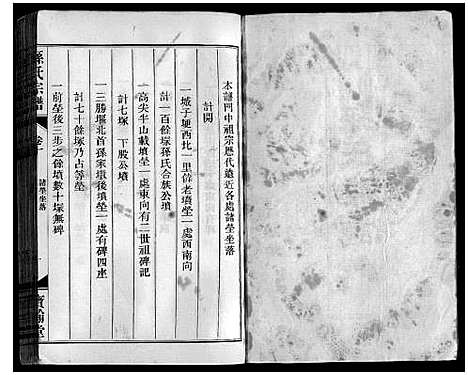 本譜內中祖宗歷代遠近各處諸塋坐落
計開
一城子堰西北一里俾老墳塋一處西南向
計一百餘塚孫氏合族公墳
一高尖半山載塋一處東向有二世祖碑記
計七塚 下股公墳
一三勝堰北首孫家墩後墳塋一處有碑四座
計七十餘塚乃占等塋
一前塋後三步之餘墳數十塚無碑
孫氏宗譜
卷
諸塋坐落
寶翰堂